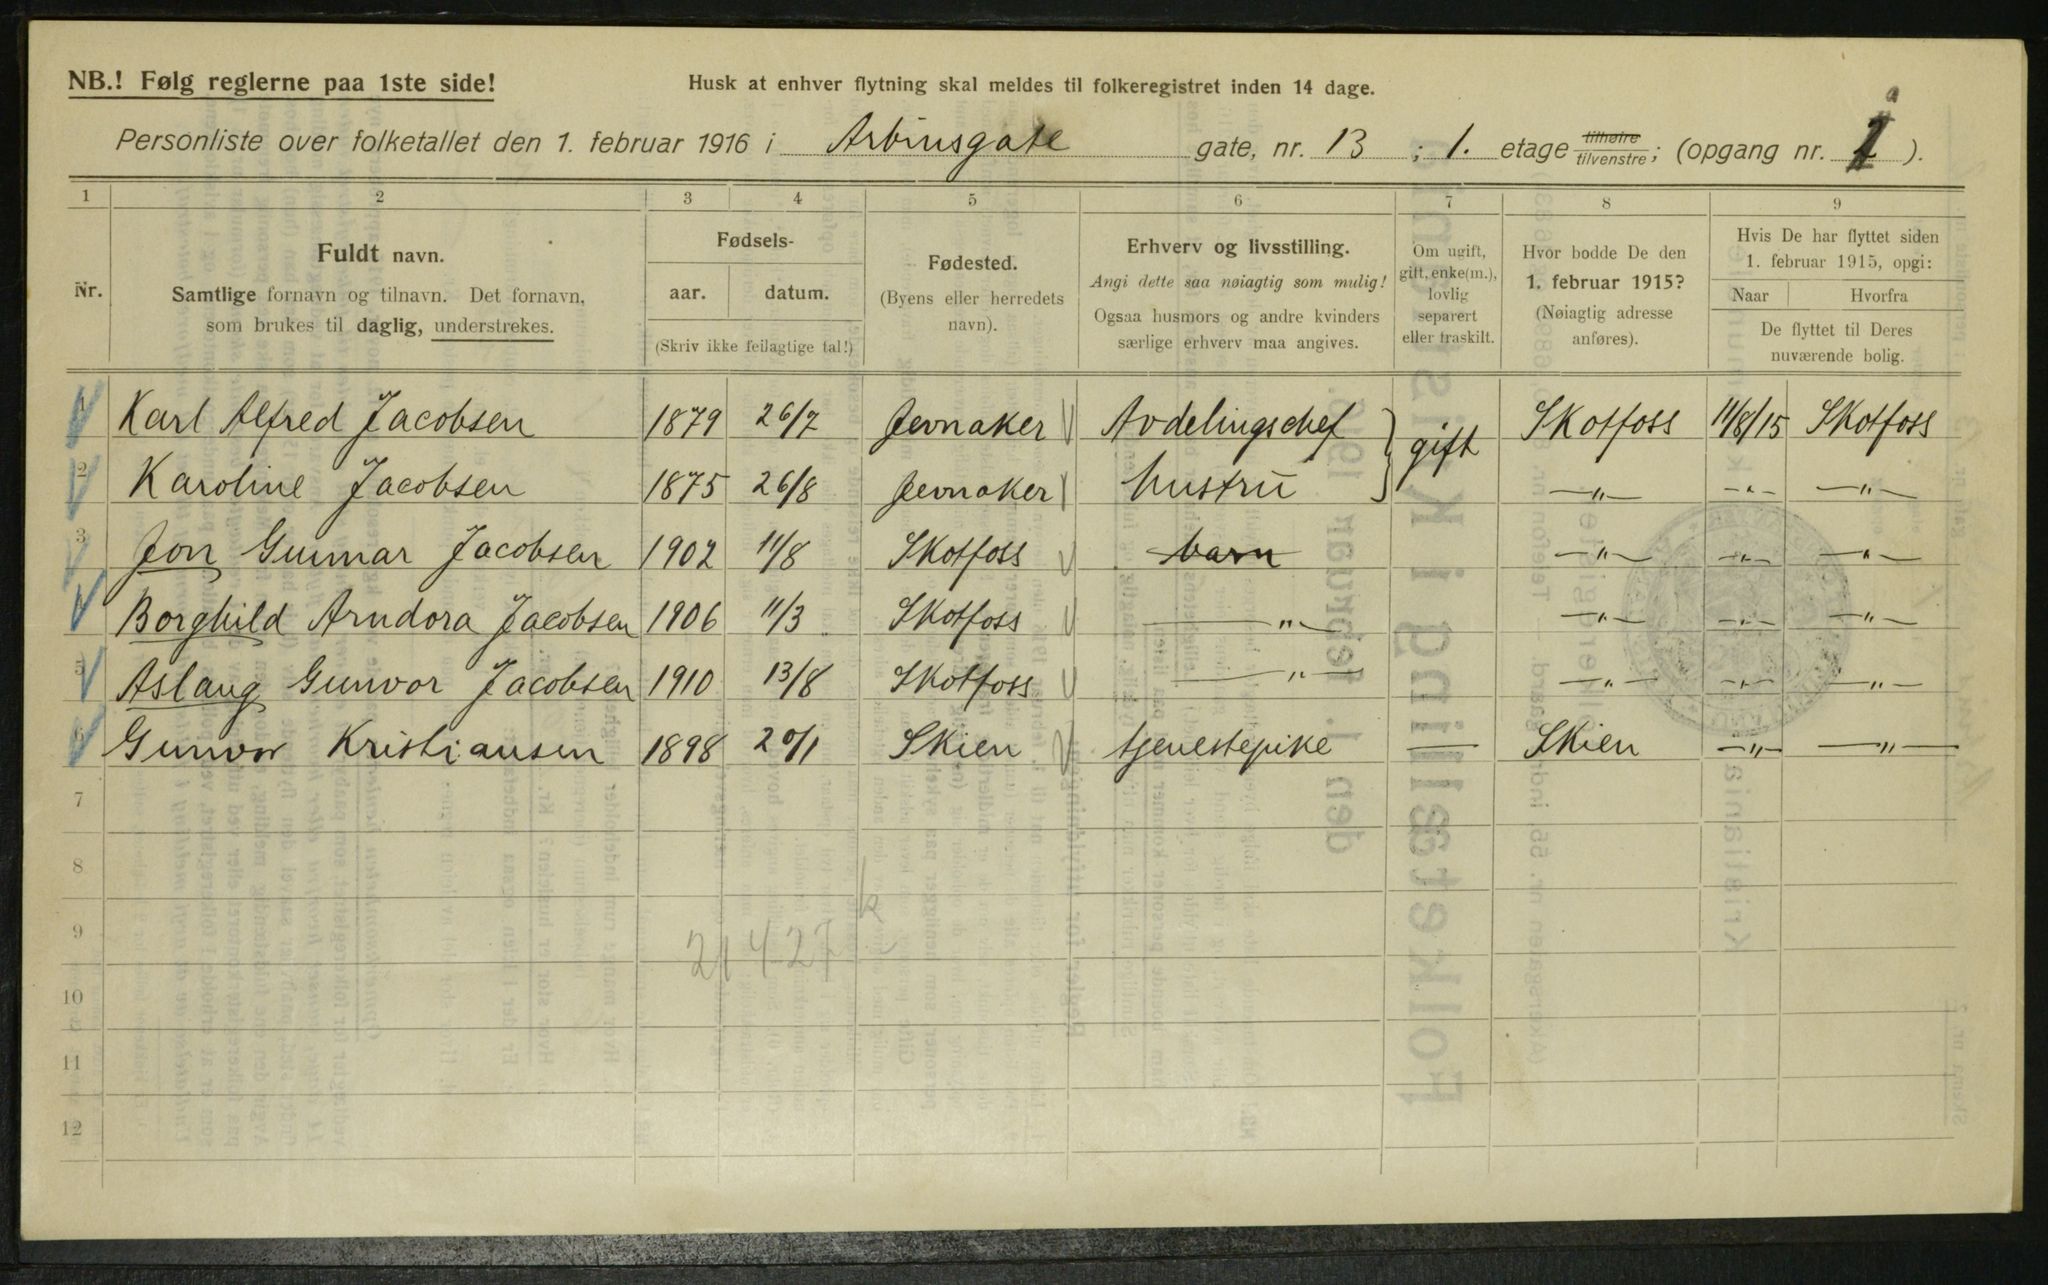 NB.! Følg reglerne paa 1ste side!
Husk at enhver flytning skal meldes til folkeregistret inden 14 dage.
Personliste over folketallet den 1. februar 1916 i Arbinsgate gate, nr. 13 ; 1. etage tilhøire tilvenstre; (opgang nr. 1 ).
1 2 3 4 5 6 7 8 9
Nr.
Fuldt navn.
Samtlige fornavn og tilnavn. Det fornavn,
som brukes til daglig, understrekes.
Fødsels-
aar. datum.
(Skriv ikke feilagtige tal!)
Fødested.
(Byens eller herredets
navn).
Erhverv og livsstilling.
Angi dette saa nøiagtig som mulig!
Ogsaa husmors og andre kvinders
særlige erhverv maa angives.
Om ugift,
gift, enke(m.),
lovlig
separert
eller fraskilt.
Hvor bodde De den
1. februar 1915?
(Nøiagtig adresse
anføres).
Hvis De har flyttet siden
1. februar 1915, opgi:
Naar Hvorfra
De flyttet til Deres
nuværende bolig.
1 Karl Alfred Jacobsen 1879 26/7 Jevnaker Avdelingschef } gift Skotfoss 11/8/15 Skotfoss
2 Karoline Jacobsen 1875 26/8 Jevnaker hustru —"— —"— —"—
3 Jon Gunnar Jacobsen 1902 11/8 Skotfoss barn —"— —"— —"—
4 Borghild Arndora Jacobsen 1906 11/3 Skotfoss —"— —"— —"— —"—
5 Aslaug Gunvor Jacobsen 1910 13/8 Skotfoss —"— —"— —"— —"—
6 Gunvor Kristiansen 1898 20/1 Skien tjenestepike — Skien —"— —"—
7
8
9
21427
10
11
12